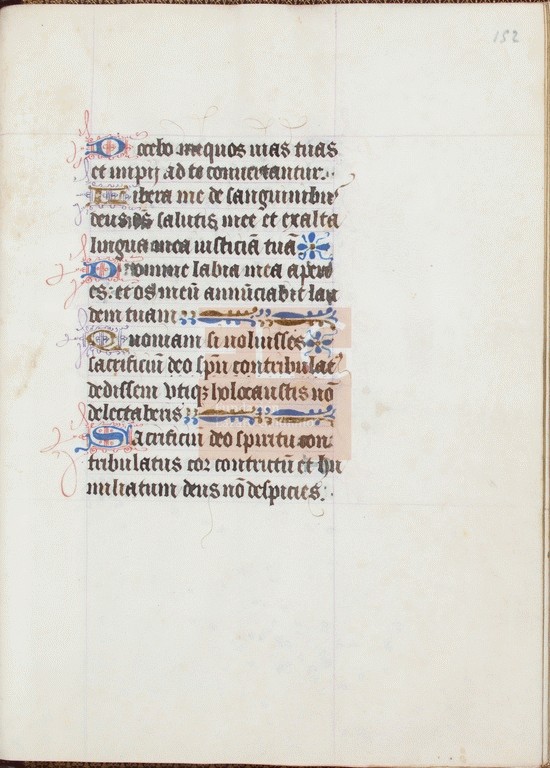 152
Docebo iniquos uias tuas
et impij ad te conuertantur.
Libera me de sanguinibus
deus ds̄ salutis mee et exalta
lingua mea iusticiā tuā
Domine labia mea aperi
es: et os meū annūciabit lau
dem tuam
Quoniam si uoluisses
sacrificiū dedissem
dedissem vtiqȝ holocaustis nō
delectaberis
Sacrificiū deo spiritu con
tribulatus cor contritū et hu
miliatum deus nō despicies.